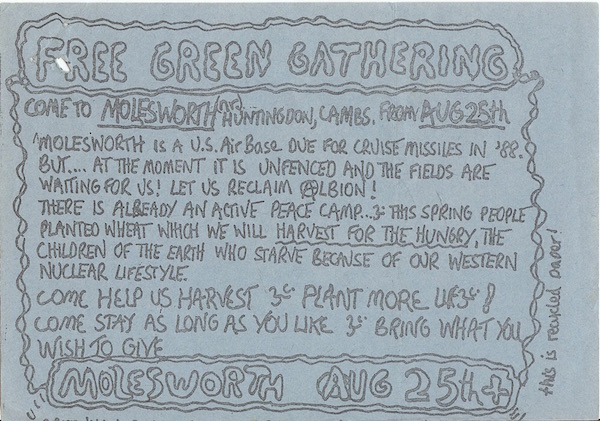 FREE GREEN GATHERING
COME TO MOLESWORTH nr. HUNTINGDON, CAMBS. FROM AUG 25th
MOLESWORTH IS A U.S. Air Base DUE FOR CRUISE MISSILES IN '88.
BUT.... AT THE MOMENT IT IS UNFENCED AND THE FIELDS ARE
WAITING FOR US! LET US RECLAIM ALBION!
THERE IS ALREADY AN ACTIVE PEACE CAMP.. & THIS SPRING PEOPLE
PLANTED WHEAT WHICH WE WILL HARVEST FOR THE HUNGRY, THE
CHILDREN OF THE EARTH WHO STARVE BECAUSE OF OUR WESTERN
NUCLEAR LIFESTYLE.
COME HELP US HARVEST & PLANT MORE
COME STAY AS LONG AS YOU LIKE & BRING WHAT YOU
WISH TO GIVE
MOLESWORTH AUG 25th +
this is recycled paper!